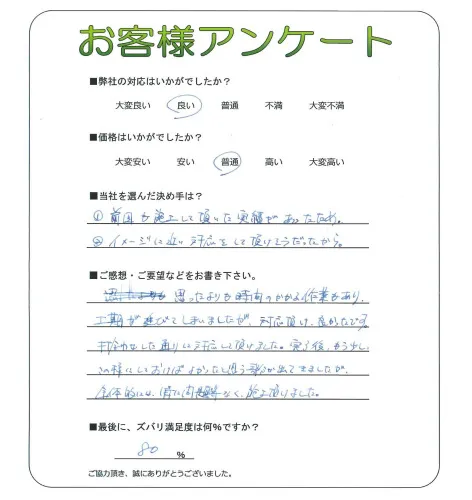 お客様アンケート
■弊社の対応はいかがでしたか?
大変良い 良い 普通 不満 大変不満
■価格はいかがでしたか?
大変安い 安い 普通 高い 大変高い
■当社を選んだ決め手は?
① 前回も施工して頂いた実績があったため。
② イメージに近い対応をして頂けそうだったから。
■ご感想・ご要望などをお書き下さい。
思ったよりも時間のかかる作業もあり、
工期が延びてしまいましたが、対応頂け、良かったです。
した通りに対応して頂けました。完了後、もう少し
この様にしておけばよかったと思う部分が出てきましたが、
全体的には、特に問題なく、施工頂けました。
■最後に、ズバリ満足度は何%ですか?
80 %
ご協力頂き、誠にありがとうございました。